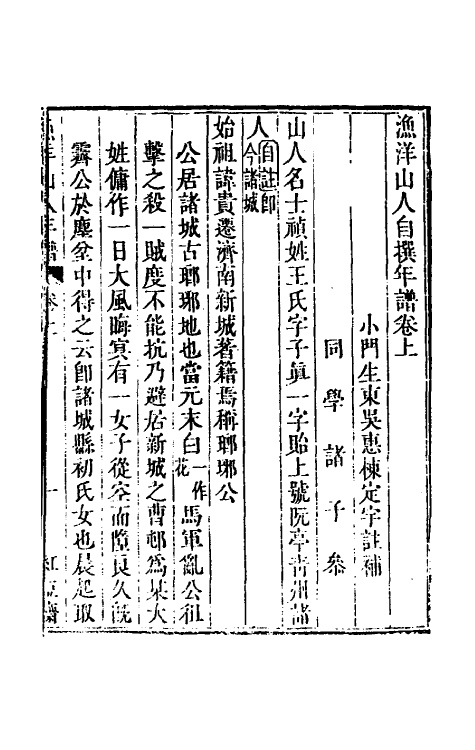 漁洋山人自撰年譜卷上
小門生東吳惠棟定字註補
同學諸子參
山人名士禎姓王氏字子眞一字貽上號阮亭靑州諸
人自註即今諸城
始祖諱貴遷濟南新城著籍焉稱瑯琊公
公居諸城古瑯琊地也當元末白一作花馬軍亂公祖
擊之殺一賊度不能抗乃避居新城之曹邨爲某大
姓傭作一日大風晦冥有一女子從空而墮良久旣
霽公於塵坌中得之云卽諸城縣初氏女也晨起取
漁洋山人年譜 卷上 一 紅豆齋